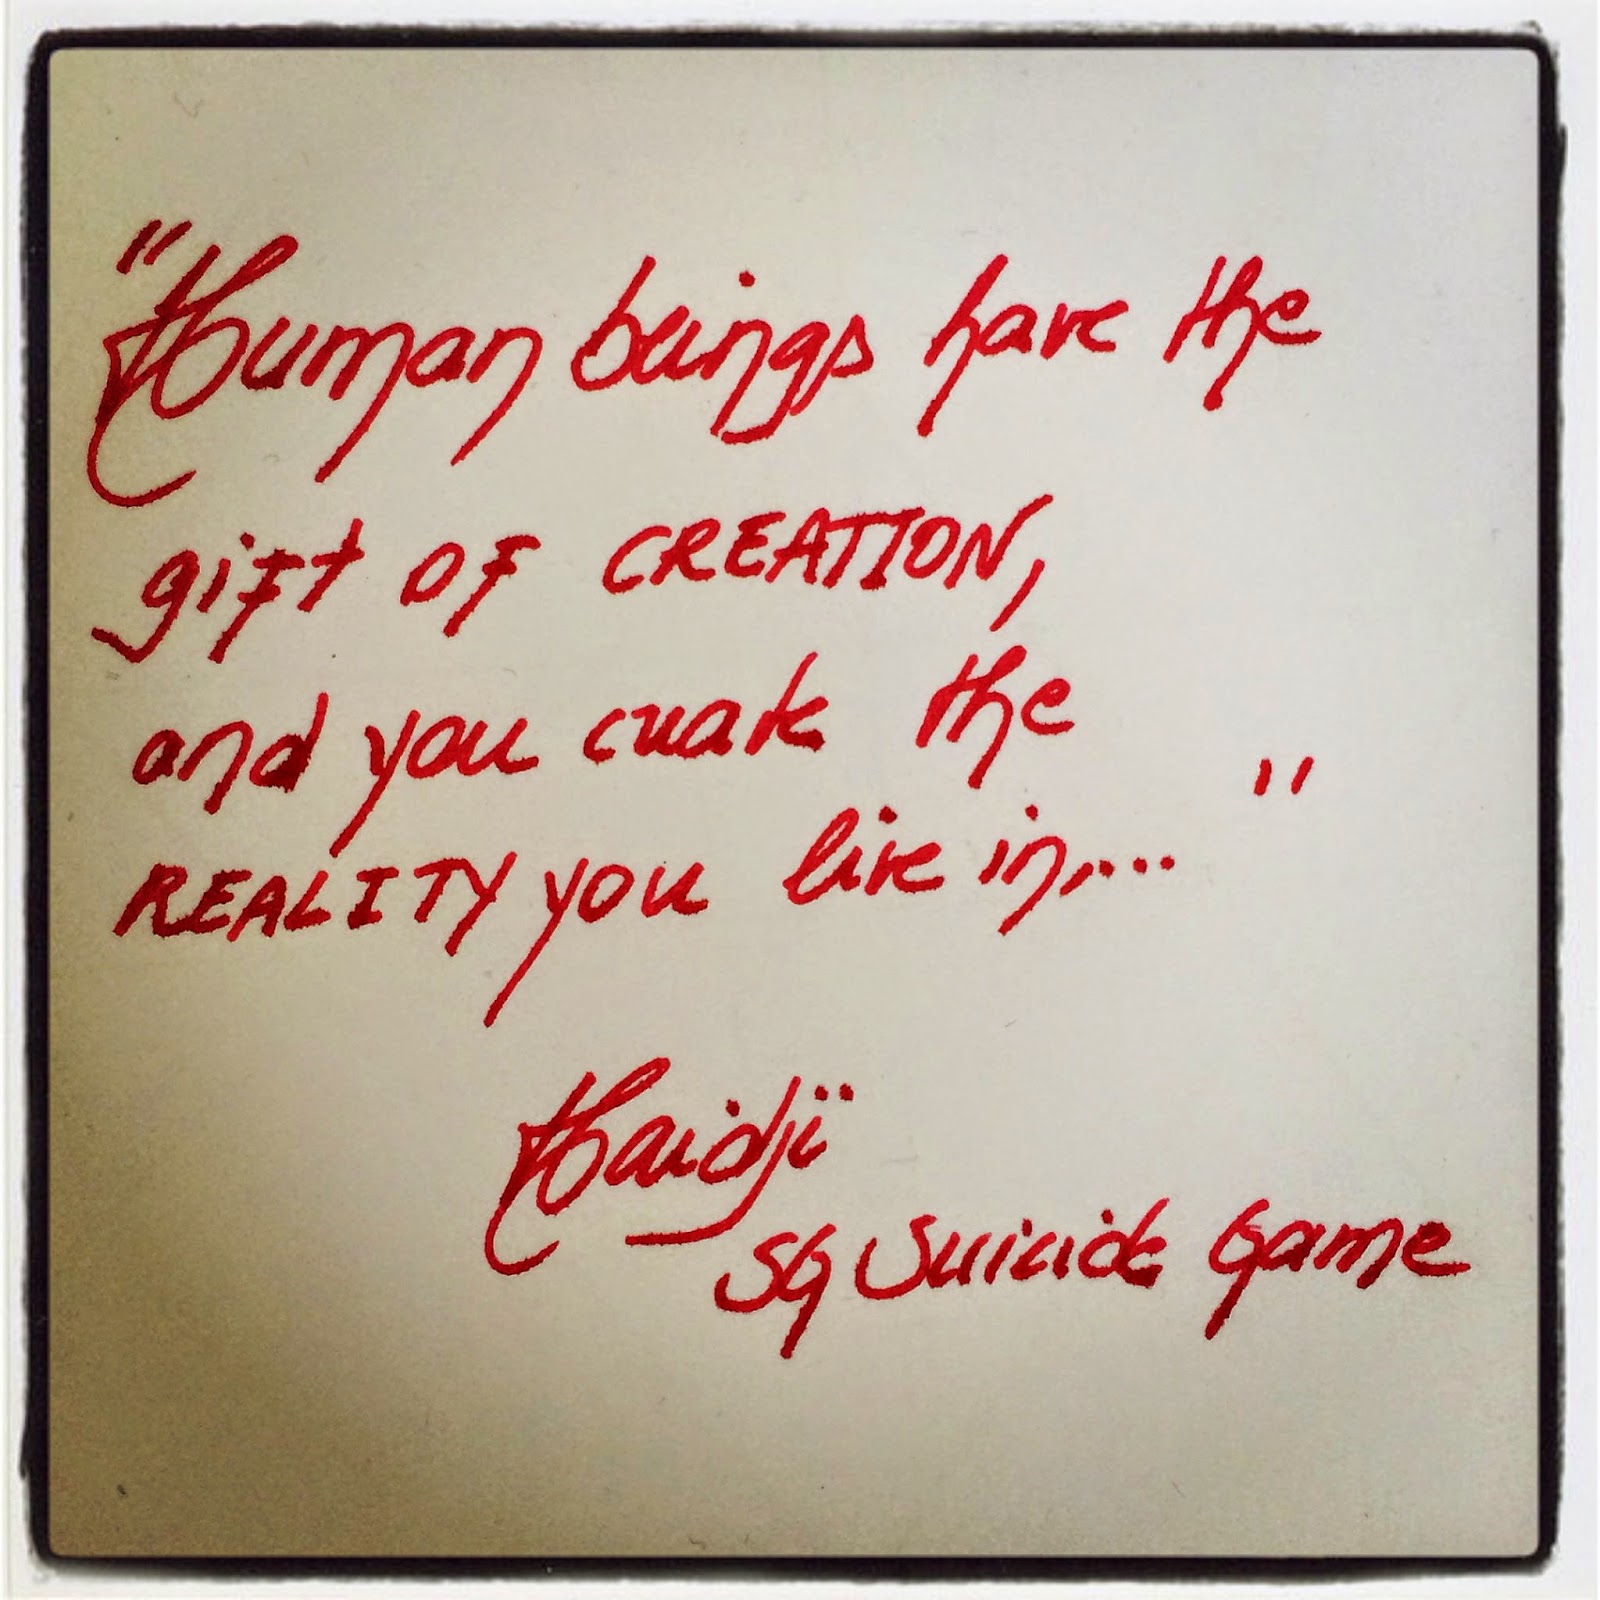 "Human beings have the
gift of CREATION,
and you create the
REALITY you live in,..."
Haidji
SG Suicide Game